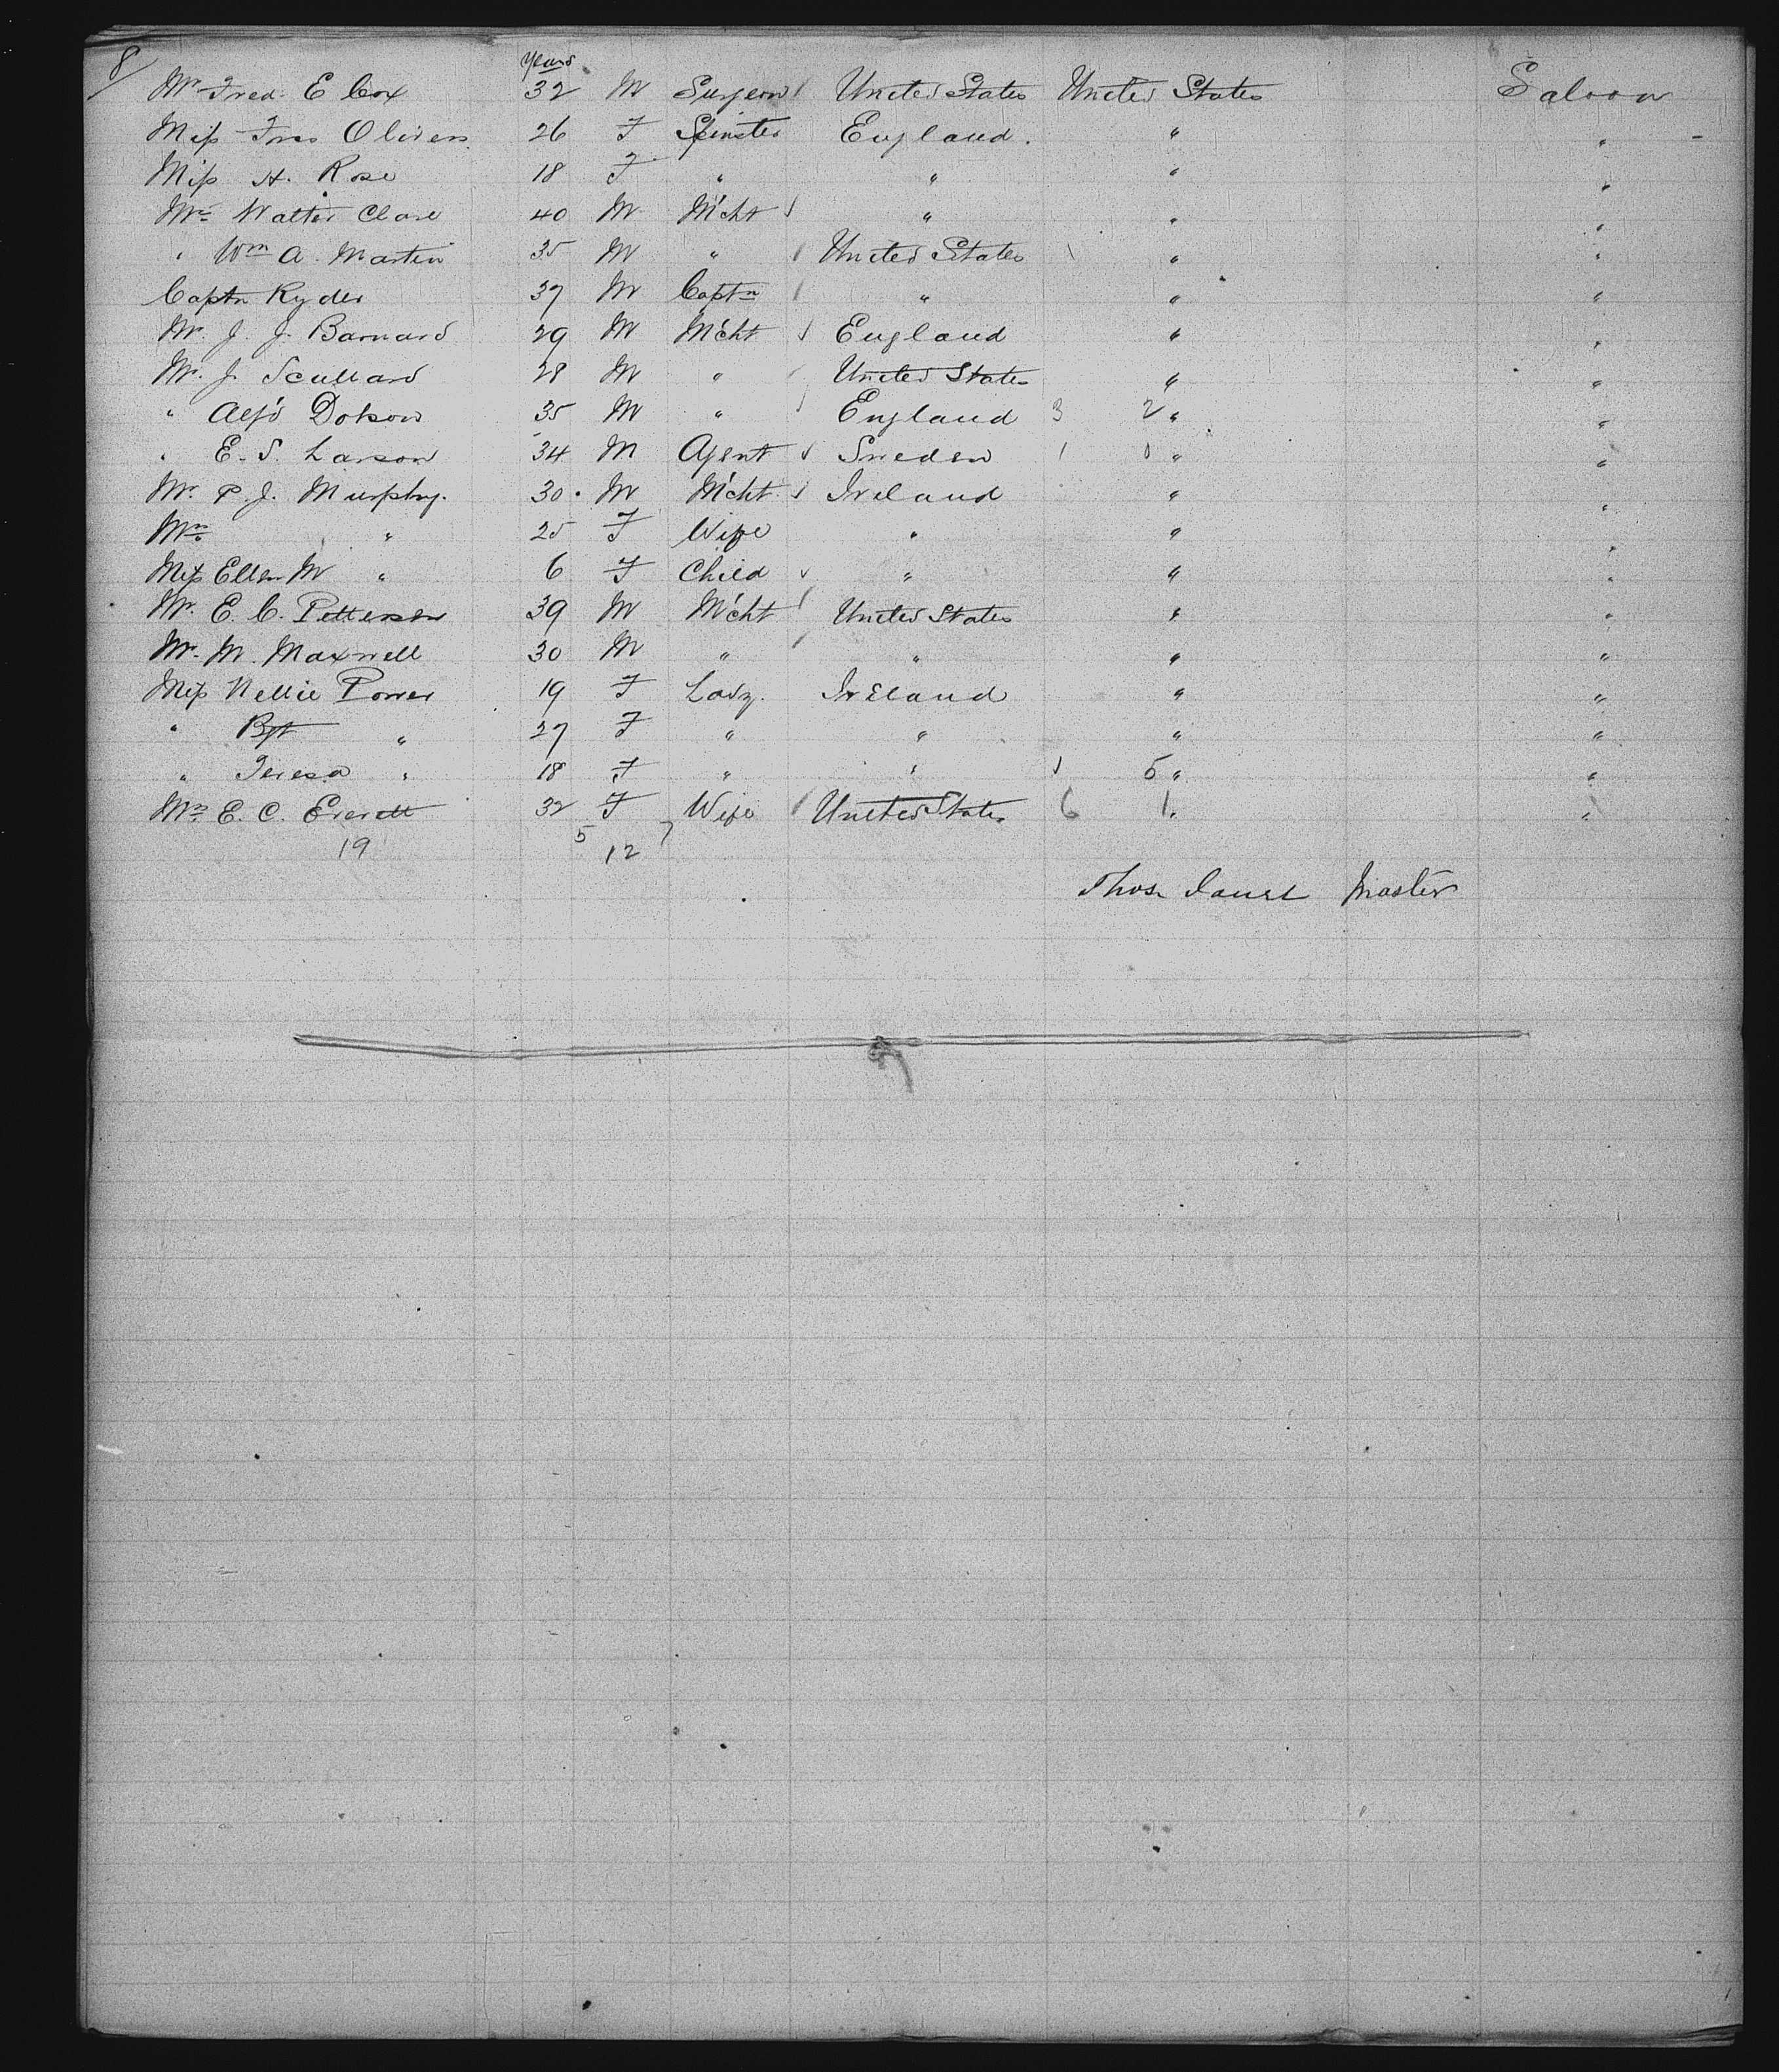 8/
Years
Mr. Fred. E Cox 32 M Surgeon United States United States Saloon
Miss Olivers 26 F Spinster England. " "
Miss A. Rose 18 F " " " "
Mr. Walter Clare 40 M M'cht " " "
" Wm A. Martin 35 M " United States " "
Captn Ryder 37 M Captn " " "
Mr. J. J. Barnard 29 M M'cht England " "
Mr. J. Scullard 28 M " United States " "
" Alf'd Dobson 35 M " England 3 2 " "
" E. S. Larson 34 M Agent Sweden 1 " "
Mr. P. J. Murphy. 30 M M'cht Ireland " "
Mrs. " 25 F Wife " " "
Miss Ellen M " 6 F Child " " "
Mr. E. C. Petterson 39 M M'cht United States " "
Mr. M. Maxwell 30 M " " " "
Miss Nellie Power 19 F Lady. Ireland " "
" Bgt " 27 F " " " "
" Teresa " 18 F " " 5 " "
Mrs. E. C. Everett 32 F Wife United States 6 1 " "
19 5 12 7
Thos. Master